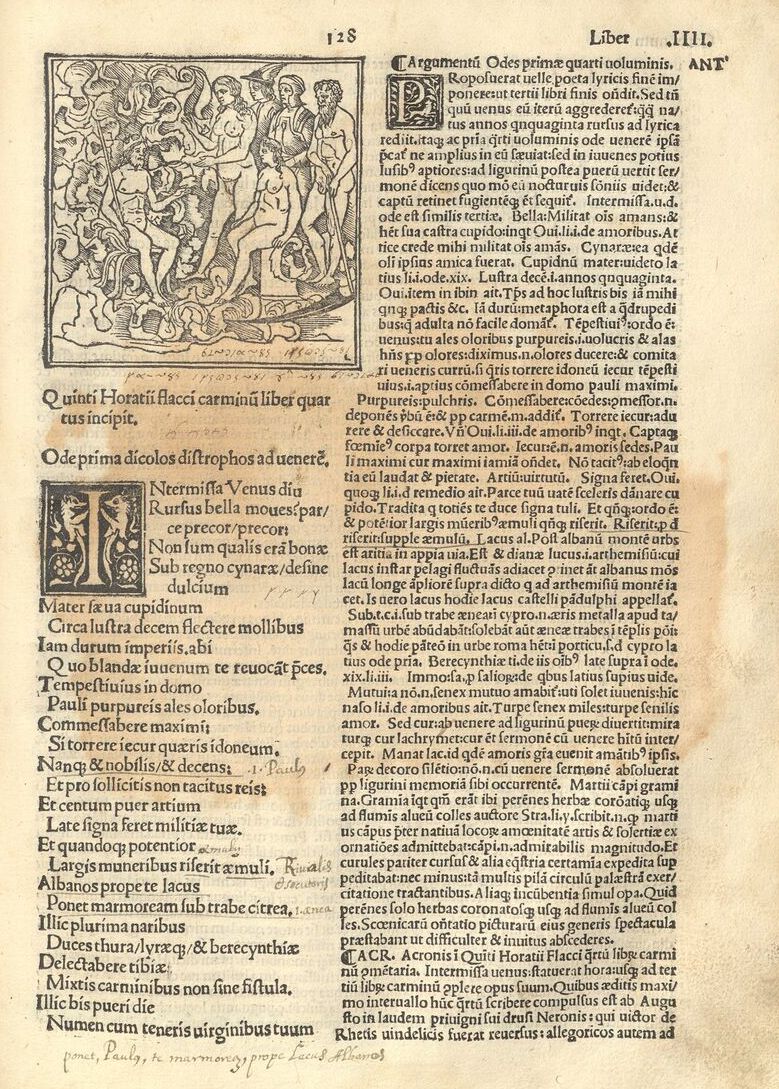 128
Liber .IIII.
Quinti Horatii flacci carminũ liber quar
tus incipit.
Ode prima dicolos distrophos ad venerẽ.
INtermissa Venus diu
Rursus bella moues? par/
ce precor/precor:
Non sum qualis erã bonæ
Sub regno cynaræ/desine
dulcium
Mater sæua cupidinum
Circa lustra decem flectere mollibus
Iam durum imperiis. abi
Quo blandæ iuuenum te reuocãt p̃ces.
Tempestiuius in domo
Pauli purpureis ales oloribus.
Commessabere maximi:
Si torrere iecur quæris idoneum.
Nanq; & nobilis/& decens:
Et pro sollicitis non tacitus reis:
Et centum puer artium
Late signa feret militiæ tuæ.
Et quandoq; potentior
Largis muneribus riserit æmuli.
Albanos prope te lacus
Ponet marmoream sub trabe citrea.
Illic plurima naribus
Duces thura/lyræq;/& berecynthiæ
Delectabere tibiæ
Mixtis carminibus non sine fistula.
Illic bis pueri die
Numen cum teneris uirginibus tuum
ponet, Paulus, te marmoreã, prope Lacus Albanos
¶Argumentũ Odes primæ quarti uoluminis. ANT'
PRoposuerat uelle poeta lyricis finẽ im/
ponere: ut tertii libri finis oñdit. Sed tñ
quũ uenus eũ iterũ aggrederet᷑: q̃q̃ na/
tus annos qnquaginta rursus ad lyrica
rediit. itaq; ac pria q̃rti uoluminis ode uenerẽ ipsã
p̃cat᷑ ne amplius in eũ sæuiat: sed in iuuenes potius
lusibꝰ aptiores: ad ligurinũ postea puerũ uertit ser/
monẽ dicens quo mõ eũ nocturnis sõniis uidet: &
captũ retinet fugientẽq; ẽt sequit᷑. Intermissa.u.d.
ode est similis tertiæ. Bella: Militat oĩs amans: &
hẽt sua castra cupido: inqt Oui.li.i.de amoribus. At
tice crede mihi militat oĩs amãs. Cynaræ: ea qdẽ
oĩ ipsius amica fuerat. Cupidnũ mater: uideto la
tius li.i.ode.xix. Lustra decẽ.i.annos qnquaginta.
Oui. item in ibin ait. Tp̃s ad hoc lustris bis iã mihi
qnq; pactis &c. Iã durũ: metaphora est a q̃drupedi
bus: q̃ adulta nõ facile domãt᷑. Tẽpestiuiꝰ: ordo ẽ:
uenus: tu ales oloribus purpureis.i.uolucris & alas
hñs p̱p olores: diximus.n.olores ducere: & comita
ri ueneris currũ. si qris torrere idoneũ iecur tẽpesti
uius.i.aptius cõmessabere in domo pauli maximi.
Purpureis: pulchris. Cõmessabere: cõedes: p̱messor.n.
deponẽs ṽbũ ẽ: & p̱p carmẽ.m.addit᷑. Torrere iecur: adu
rere & desiccare. Vñ Oui.li.iii.de amoribꝰ inqt. Captaq;
fœmĩeꝰ corpa torret amor. Iecur: ẽ.n. amoris sedes. Pau
li maximi cur maximi iamiã oñdet. Nõ tacitꝰ: ab eloqñ
tia eũ laudat & pietate. Artiũ: uirtutũ. Signa feret. Oui.
quoq; li.i.d remedio ait. Parce tuũ uatẽ sceleris dãnare cu
pido. Tradita q toties te duce signa tuli. Et qñq;: ordo ẽ:
& potẽtior largis mũeribꝰ æmuli qñq; riserit. Riserit: p d
riserit: supple æmulũ. Lacus al. Post albanũ montẽ urbs
est aritia in appia uia. Est & dianæ lucus.i.arthemisiũ: cui
lacus instar pelagi fluctuãs adiacet pinet ãt albanus mõs
Sub.t.c.i. sub trabe æneati cypro.n.æris metalla apud ta/
massũ urbẽ abũdabãt: solebãt aũt æneæ trabes i tẽplis põi:
xix.li.iii.
Mutui: a nõ.n.senex mutuo amabit᷑: uti solet iuuenis: hic
naso li.i.de amoribus ait. Turpe senex miles: turpe senilis
amor. Sed cur: ab uenere ad ligurinũ pueꝝ diuertit: mira
turq; cur lachrymet: cur ẽt sermonẽ cũ uenere hĩtũ inter/
cepit. Manat lac. id qdẽ amoris gr̃a euenit amãtibꝰ ipsis.
Paꝝ decoro silẽtio: nõ.n. cũ uenere sermonẽ absoluerat
p̱p ligurini memoriã sibi occurrentẽ. Martii cãpi grami
na. Gramĩa iqt qm̃ erãt ibi perẽnes herbæ corõatiq; usq;
ad flumis alueũ colles auctore Stra.li.y. scribit.n.q; marti
us cãpus p̃ter natiuã locoꝝ amœnitatẽ artis & solertiæ ex
ornatiões admittebat: cãpi.n.admirabilis magnitudo. Et
curules pariter cursus & alia eq̃stria certamĩa expedita sup
peditabat: nec minus: tã multis pilã circulũ palæstrã exer/
citatione tractantibus. Aliaq; incũbentia simul opa. Quid
perẽnes solo herbas coronatosq; usq; ad flumĩs alueũ col
les. Scœnicarũ oñtatio picturarũ eius generis spectacula
præstabant ut difficulter & inuitus abscederes.
¶ACR. Acronis i Quĩti Horatii Flacci q̃rtũ libꝝ carmi
nũ ꝯmẽtaria. Intermissa uenus: statuerat hora: usq; ad ter
tiũ libꝝ carminũ ꝯplere opus suum. Quibus æditis maxi/
mo interuallo hũc q̃rtũ scribere compulsus est ab Augu
sto in laudem priuigni sui drusi Neronis: qui uictor de
Rhetis uindelicis fuerat reuersus: allegoricos autem ad